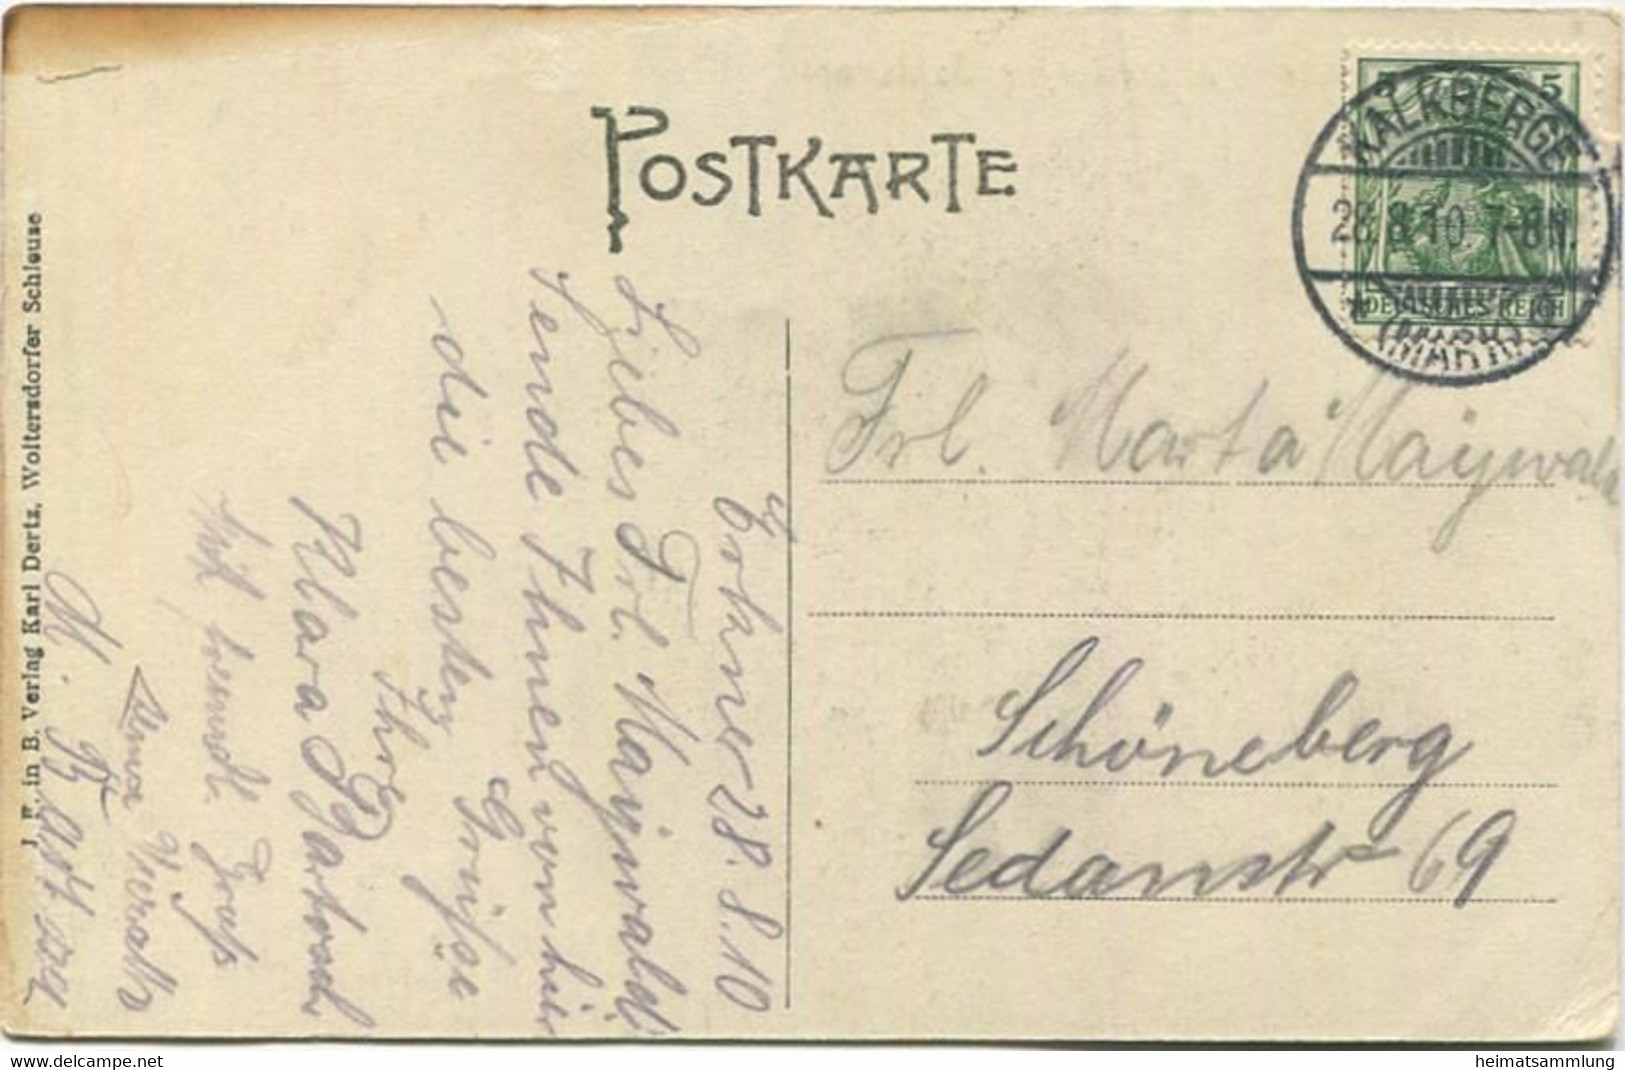 POSTKARTE
5 5
KALKBERGE
28.8.10. 7-8N.
* (MARK)
DEUTSCHES REICH
Frl. Marta Maiywald
Schöneberg
Sedanstr 69
Erkner 28.8.10
Liebes Frl. Maiywald!
Sende Ihnen von hier
die besten Grüsse
Ihre
Klara Bartosch
Mit freundl. Gruß
M.
J. F. in B. Verlag Karl Dertz, Woltersdorfer Schleuse
www.delcampe.net
heimatsammlung